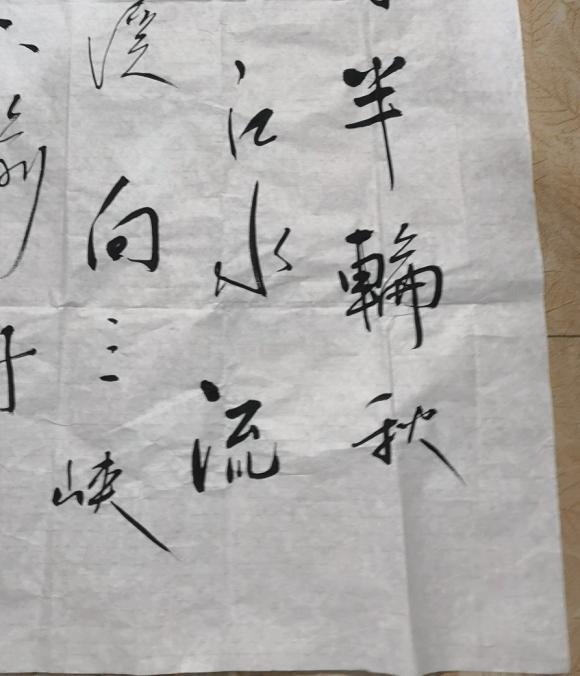 半輪秋
江水流
溪向三峽